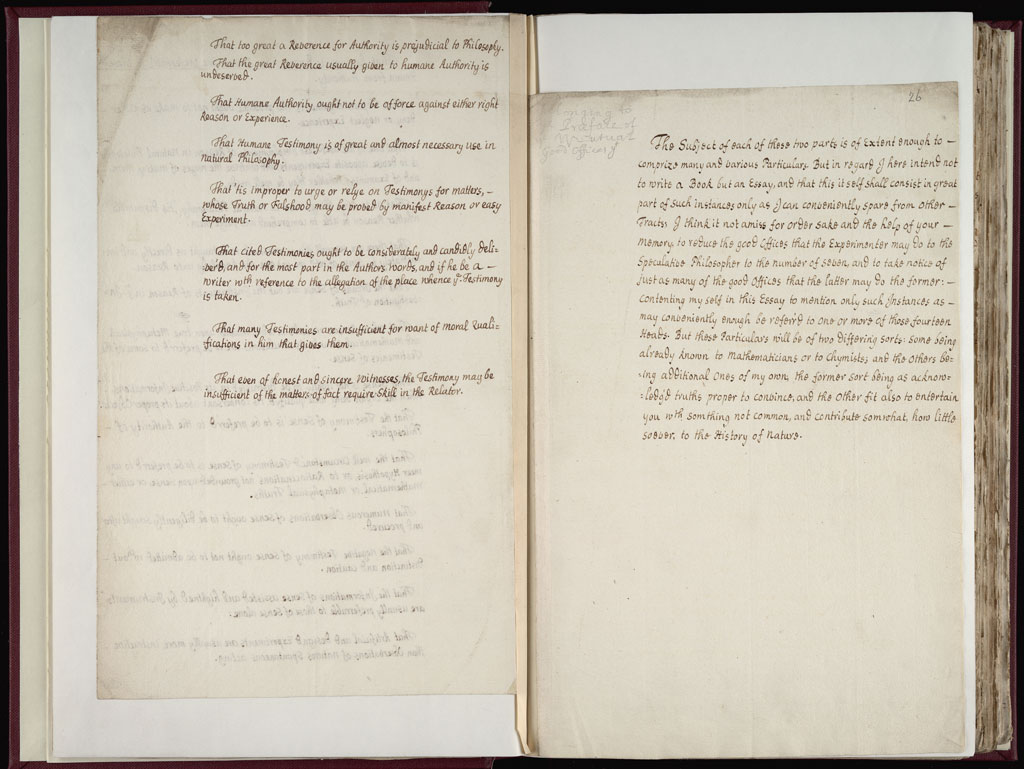 That too great a Reverence for Authority is prejudicial to Philosophy.
That the great Reverence usually given to humane Authority is
undeserved.
That Humane Authority ought not to be of force against either right
Reason or Experience.
That Humane Testimony is of great and almost necessary use in
natural Philosophy.
That 'tis Improper to urge or relye on Testimonys for matters, –
whose Truth or Falshood may be proved by manifest Reason or easy
Experiment.
That cited Testimonies ought to be considerately and candidly deli-
ver'd, and for the most part in the Authors words, and if he be a –
writer wth reference to the allegation of the place whence ye Testimony
is taken.
That many Testimonies are insufficient for want of moral Quali=
fications in him that gives them.
That even of honest and sincere Witnesses, the Testimony may be
insufficient if the matters of fact require Skill in the Relator.
26
Preface of
Mutual
good Offices
The Subject of each of these two parts is of Extent enough to –
comprize many and various Particulars. But in regard I here intend not
to write a Book but an Essay, and that this it self shall consist in great
part of such instances only as I can conveniently spare from other –
Tracts; I think it not amiss for order sake and the help of your –
Memory, to reduce the good Offices that the Experimenter may do to the
Speculative Philosopher to the number of seven, and to take notice of
just as many of the good Offices that the latter may do the former: –
contenting my self in this Essay to mention only such Instances as –
may conveniently enough be referr'd to one or more of those fourteen
Heads. But these Particulars will be of two differing sorts: some being
already known to Mathematicians or to Chymists; and the Others be=
=ing additional Ones of my own; the former sort being as acknow=
=ledg'd truths proper to convince, and the Other fit also to entertain
you wth somthing not common, and contribute somwhat, how little
soever, to the History of Nature.